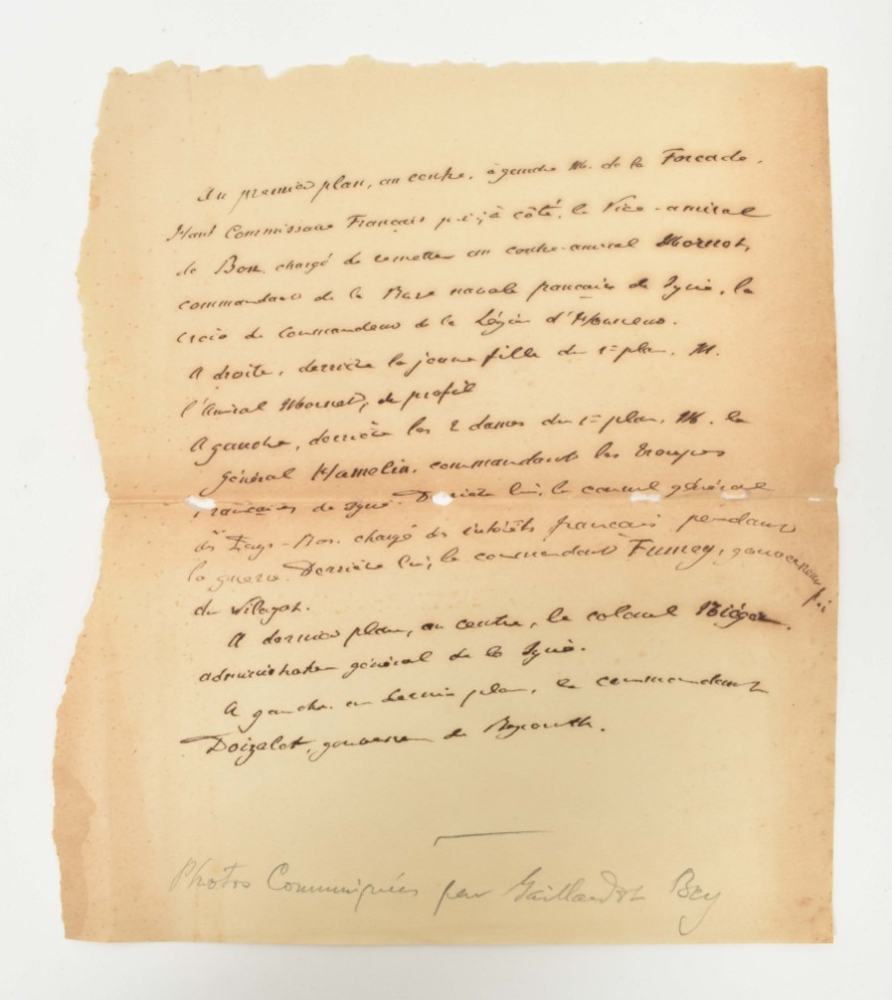 Au premier plan, au centre, à gauche M. de la Forcade,
Haut Commissaire Français p.i; à côté, le Vice-amiral
de Bon, chargé de remettre au contre-amiral Mornet,
commandant de la Base navale française de Syrie, la
croix de Commandeur de la Légion d'Honneur.
A droite, derrière la jeune fille du 1er plan, M.
l'Amiral Mornet, de profil
A gauche, derrière les 2 dames du 1er plan, M. le
général Hamelin, commandant les troupes
françaises de Syrie. Derrière lui, le consul général
des Pays-Bas, chargé des intérêts français pendant
la guerre. Derrière lui, le commandant Fumey, gouverneur p.i
du Vilayet.
A dernier plan, au centre, le colonel Nieger,
administrateur général de la Syrie.
A gauche, au dernier plan, le commandant
Doizelet, gouverneur de Beyrouth.
Photos Communiquées par Gaillardot Bey